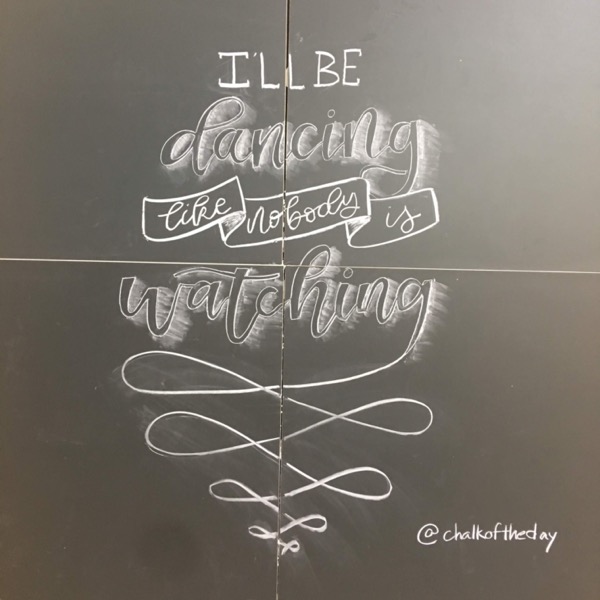 I'LL BE
dancing
like nobody is
watching
@chalkoftheday